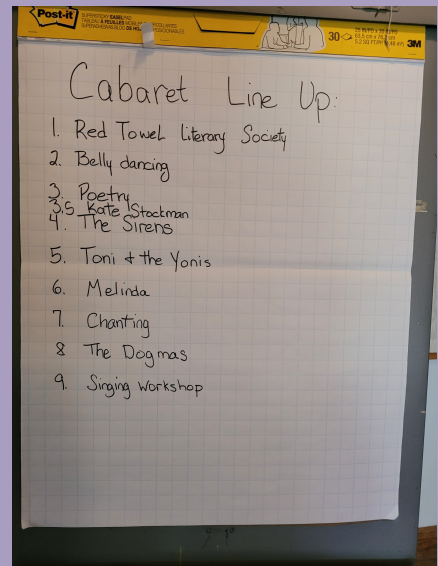 Post-it
SUPERSTICKY EASEL PAD
30
3M
Cabaret Line Up:
1. Red Towel Literary Society
2. Belly dancing
3. Poetry
3.5 Kate Stockman
4. The Sirens
5. Toni & the Yonis
6. Melinda
7. Chanting
8 The Dogmas
9. Singing Workshop